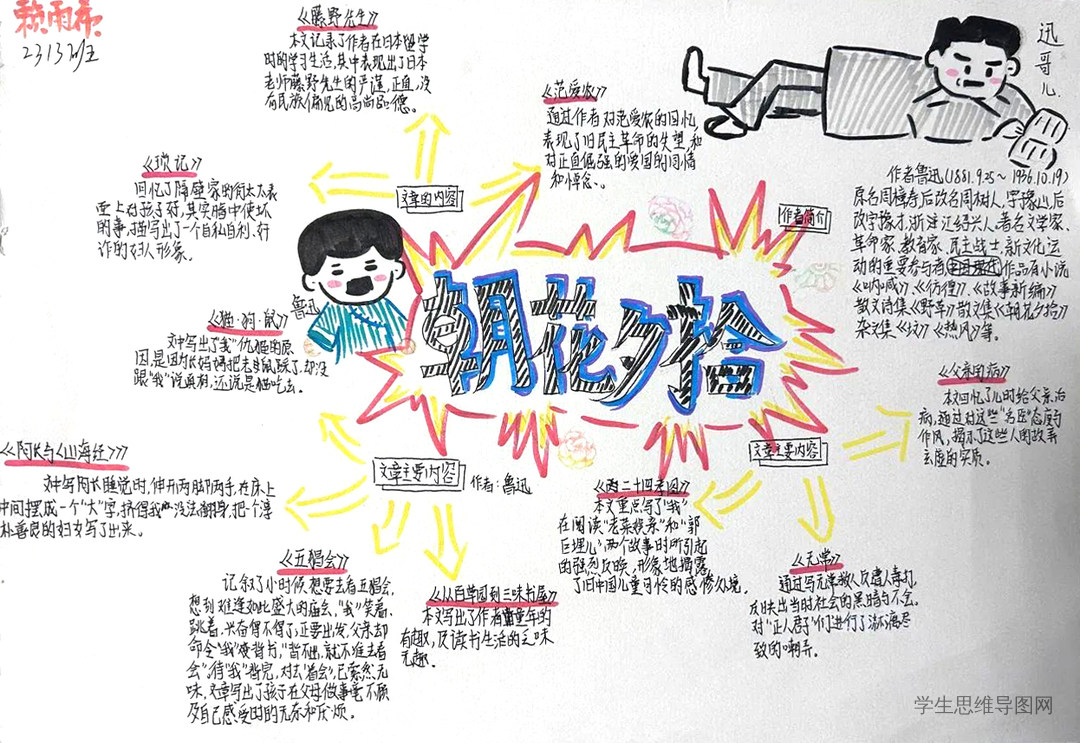 2313班
《藤野先生》
本文记录了作者在日本留学
时的学习生活,其中表现出了日本
老师藤野先生的严谨,正直,没
有民族偏见的高尚品德。
迅
哥
儿
《范爱农》
通过作者对范爱农的回忆,
表现了旧民主革命的失望,和
对正直倔强的爱国的同情
和悼念。
《琐记》
回忆了隔壁家的衍太太表
面上对孩子好,其实暗中使坏
的事,描写出了一个自私自利,奸
诈的妇人形象。
文章的内容
作者简介
作者鲁迅(1881.9.25~1936.10.19)
原名周樟寿后改名周树人,字豫山,后
改字豫才,浙江绍兴人,著名文学家、
革命家,教育家,民主战士,新文化运
动的重要参与者,作品有小说
《呐喊》《彷徨》、《故事新编》
散文诗集《野草》散文集《朝花夕拾》
杂文集《坟》《热风》等。
鲁迅
朝花夕拾
《猫·狗·鼠》
文中写出了"我"仇猫的原
因,是因为长妈妈把老鼠踩了,却没
跟"我"说真相,还说是猫吃去。
《父亲的病》
本文回忆了儿时给父亲治
病,通过对这些"名医"态度与
作风,揭示了这些人的故弄
玄虚的实质。
文章主要内容
《阿长与《山海经》》
文中写阿长睡觉时,伸开两脚两手,在床上
中间摆成一个"大"字,挤得我没法翻身,把一个淳
朴善良的妇女写了出来。
文章主要内容
作者:鲁迅
《二十四孝图》
本文重点写了"我"
在阅读"老莱娱亲"和"郭
巨埋儿"两个故事时所引起
的强烈反映,形象地揭露
了旧中国儿童可怜的悲惨处境。
《五猖会》
记叙了小时候想要去看五猖会,
想到难逢如此盛大的庙会,"我"笑着,
跳着,兴奋得不得了,正要出发,父亲却
命令"我"要背书,"背不出,就不准去看
会",待"我"背完,对去看会,已索然无
味,文章写出了孩子在父母做事毫不顾
及自己感受时的无奈和厌烦。
《从百草园到三味书屋》
本文写出了作者童年的
有趣,及读书生活的乏味
无趣。
《无常》
通过写无常救人反遭人毒打,
反映出当时社会的黑暗与不公,
对"正人君子"们进行了淋漓尽
致的嘲弄。
学生思维导图网